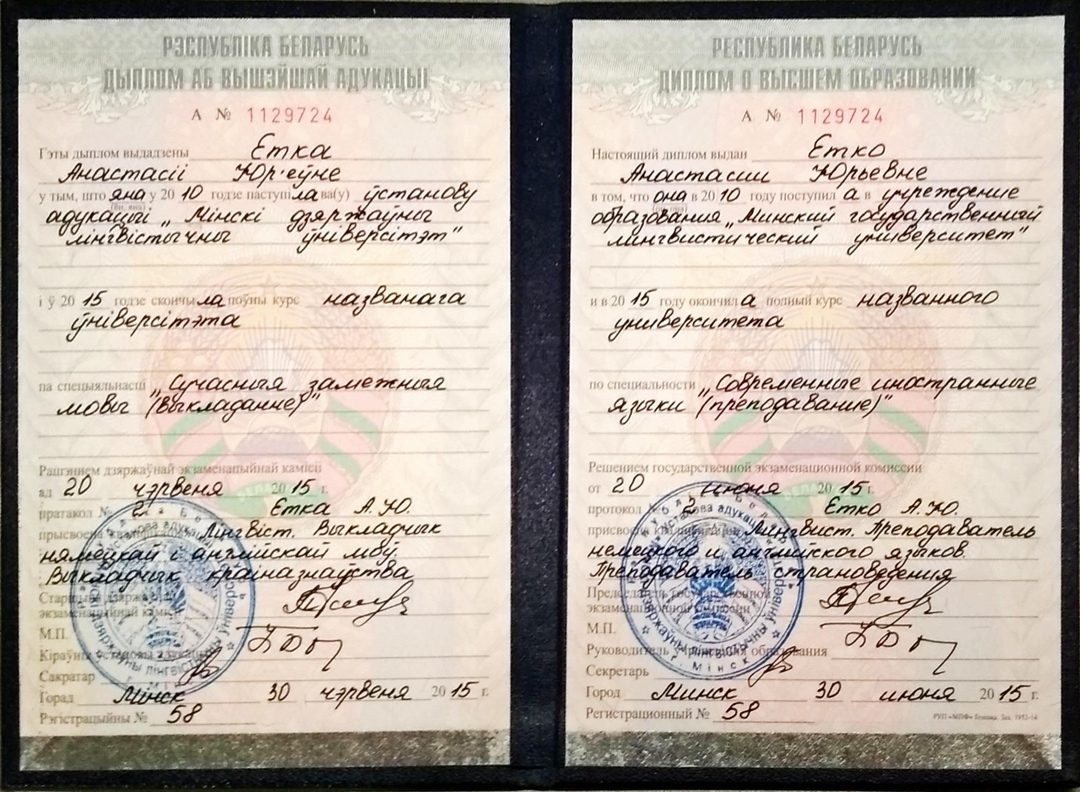 РЭСПУБЛІКА БЕЛАРУСЬ
ДЫПЛОМ АБ ВЫШЭЙШАЙ АДУКАЦЫІ
А № 1129724
Гэты дыплом выдадзены Етка
Анастасіі Юр'еўне
у тым, што яна у 2010 годзе паступіла ва(у) ўстанову
(ён, яна)
адукацыі „Мінскі дзяржаўны
лінгвістычны ўніверсітэт"
і ў 2015 годзе скончыла поўны курс названага
ўніверсітэта
па спецыяльнасці „Сучасныя замежныя
мовы (выкладанне)"
Рашэннем дзяржаўнай экзаменацыйнай камісіі
ад 20 чэрвеня 2015 г.
пратакол № 2 Етка А.Ю.
прысвоена кваліфікацыя Лінгвіст. Выкладчык
нямецкай і англійскай моў.
Выкладчык краіназнаўства
Старшыня дзяржаўнай
экзаменацыйнай камісіі
М.П.
Кіраўнік установы адукацыі
Сакратар
Горад Мінск 30 чэрвеня 2015 г.
Рэгістрацыйны № 58
РЕСПУБЛИКА БЕЛАРУСЬ
ДИПЛОМ О ВЫСШЕМ ОБРАЗОВАНИИ
А № 1129724
Настоящий диплом выдан Етко
Анастасии Юрьевне
в том, что она в 2010 году поступила в учреждение
образования „Минский государственный
лингвистический университет"
и в 2015 году окончила полный курс названного
университета
по специальности „Современные иностранные
языки (преподавание)"
Решением государственной экзаменационной комиссии
от 20 июня 2015 г.
протокол № 2 Етко А.Ю.
присвоена Лингвист. Преподаватель
немецкого и английского языков.
Преподаватель страноведения
Председатель государственной
экзаменационной комиссии
М.П.
Руководитель учреждения образования
Секретарь
Город Минск 30 июня 2015 г.
Регистрационный № 58